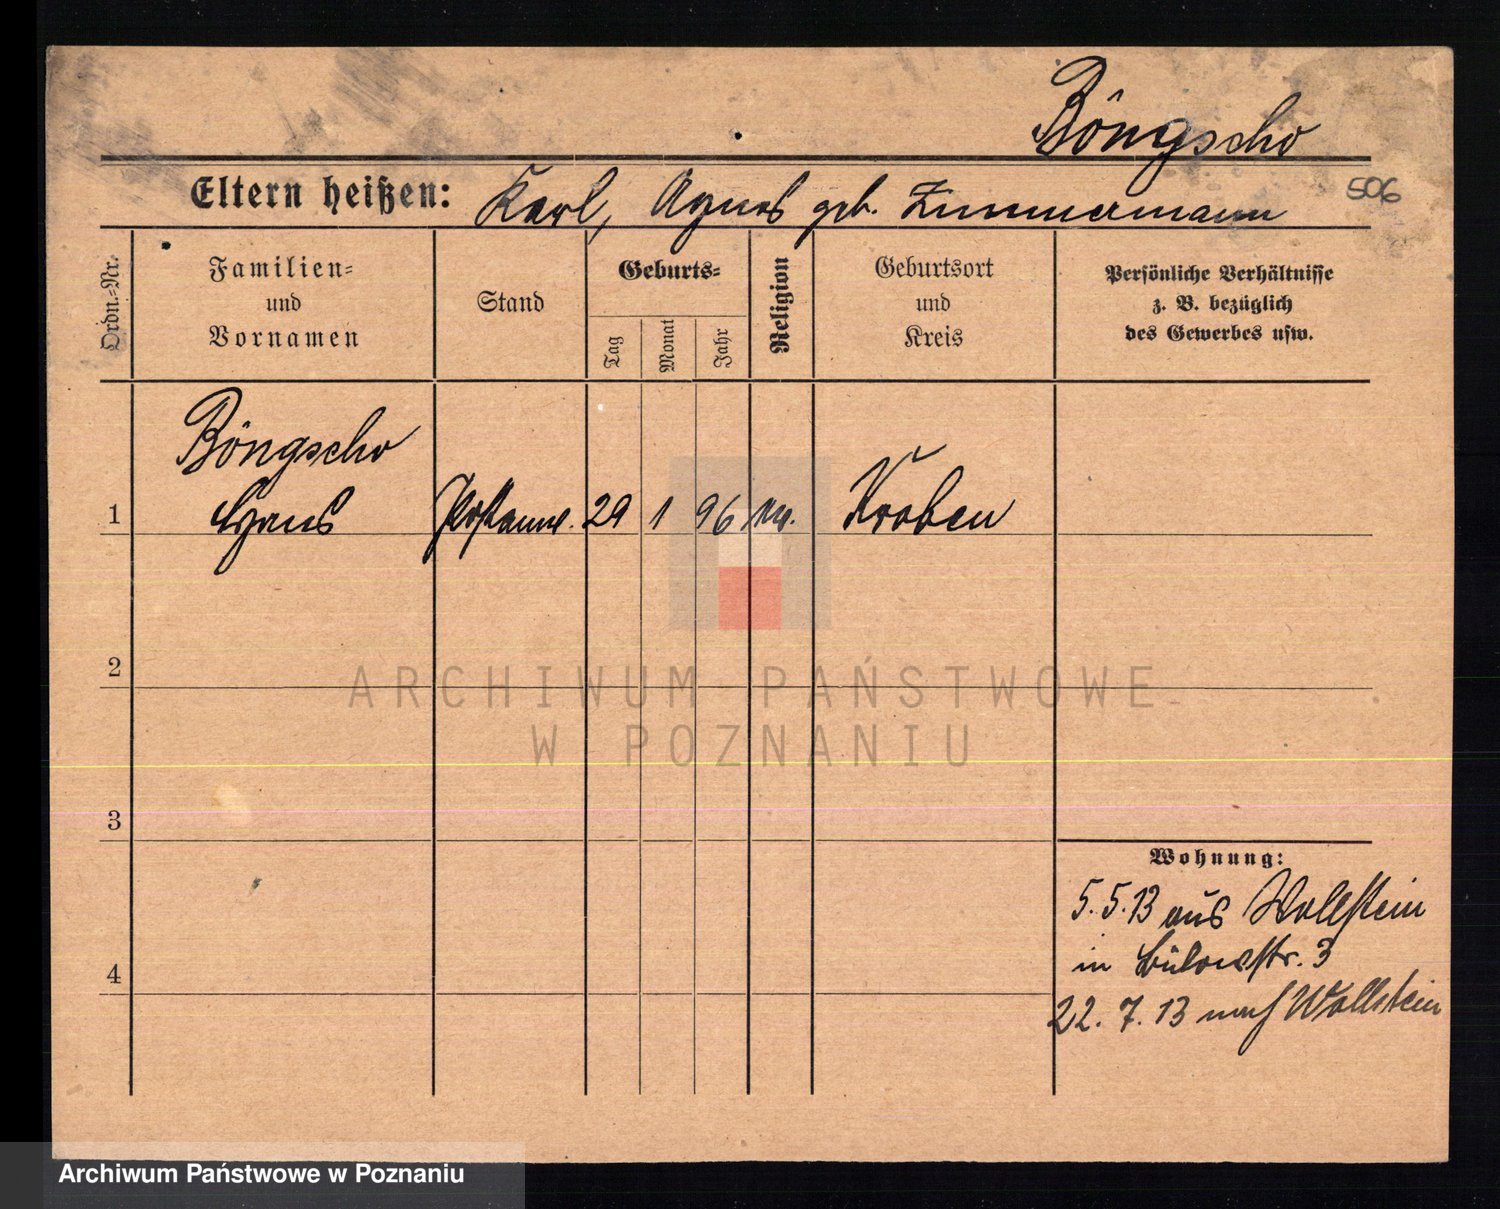 Böngscho
Eltern heißen: Karl, Agnes geb. Zimmermann
506
Ordn.-Nr.
Familien- und Vornamen
Stand
Geburts-
Tag
Monat
Jahr
Religion
Geburtsort und Kreis
Persönliche Verhältnisse
z. B. bezüglich
des Gewerbes usw.
Böngscho
1 Hans 29 1 96 Kroben
2
3
Wohnung:
5.5.13 aus Wollstein
in Bülowstr. 3
4
22.7.13 nach Wollstein
ARCHIWUM PAŃSTWOWE
W POZNANIU
Archiwum Państwowe w Poznaniu